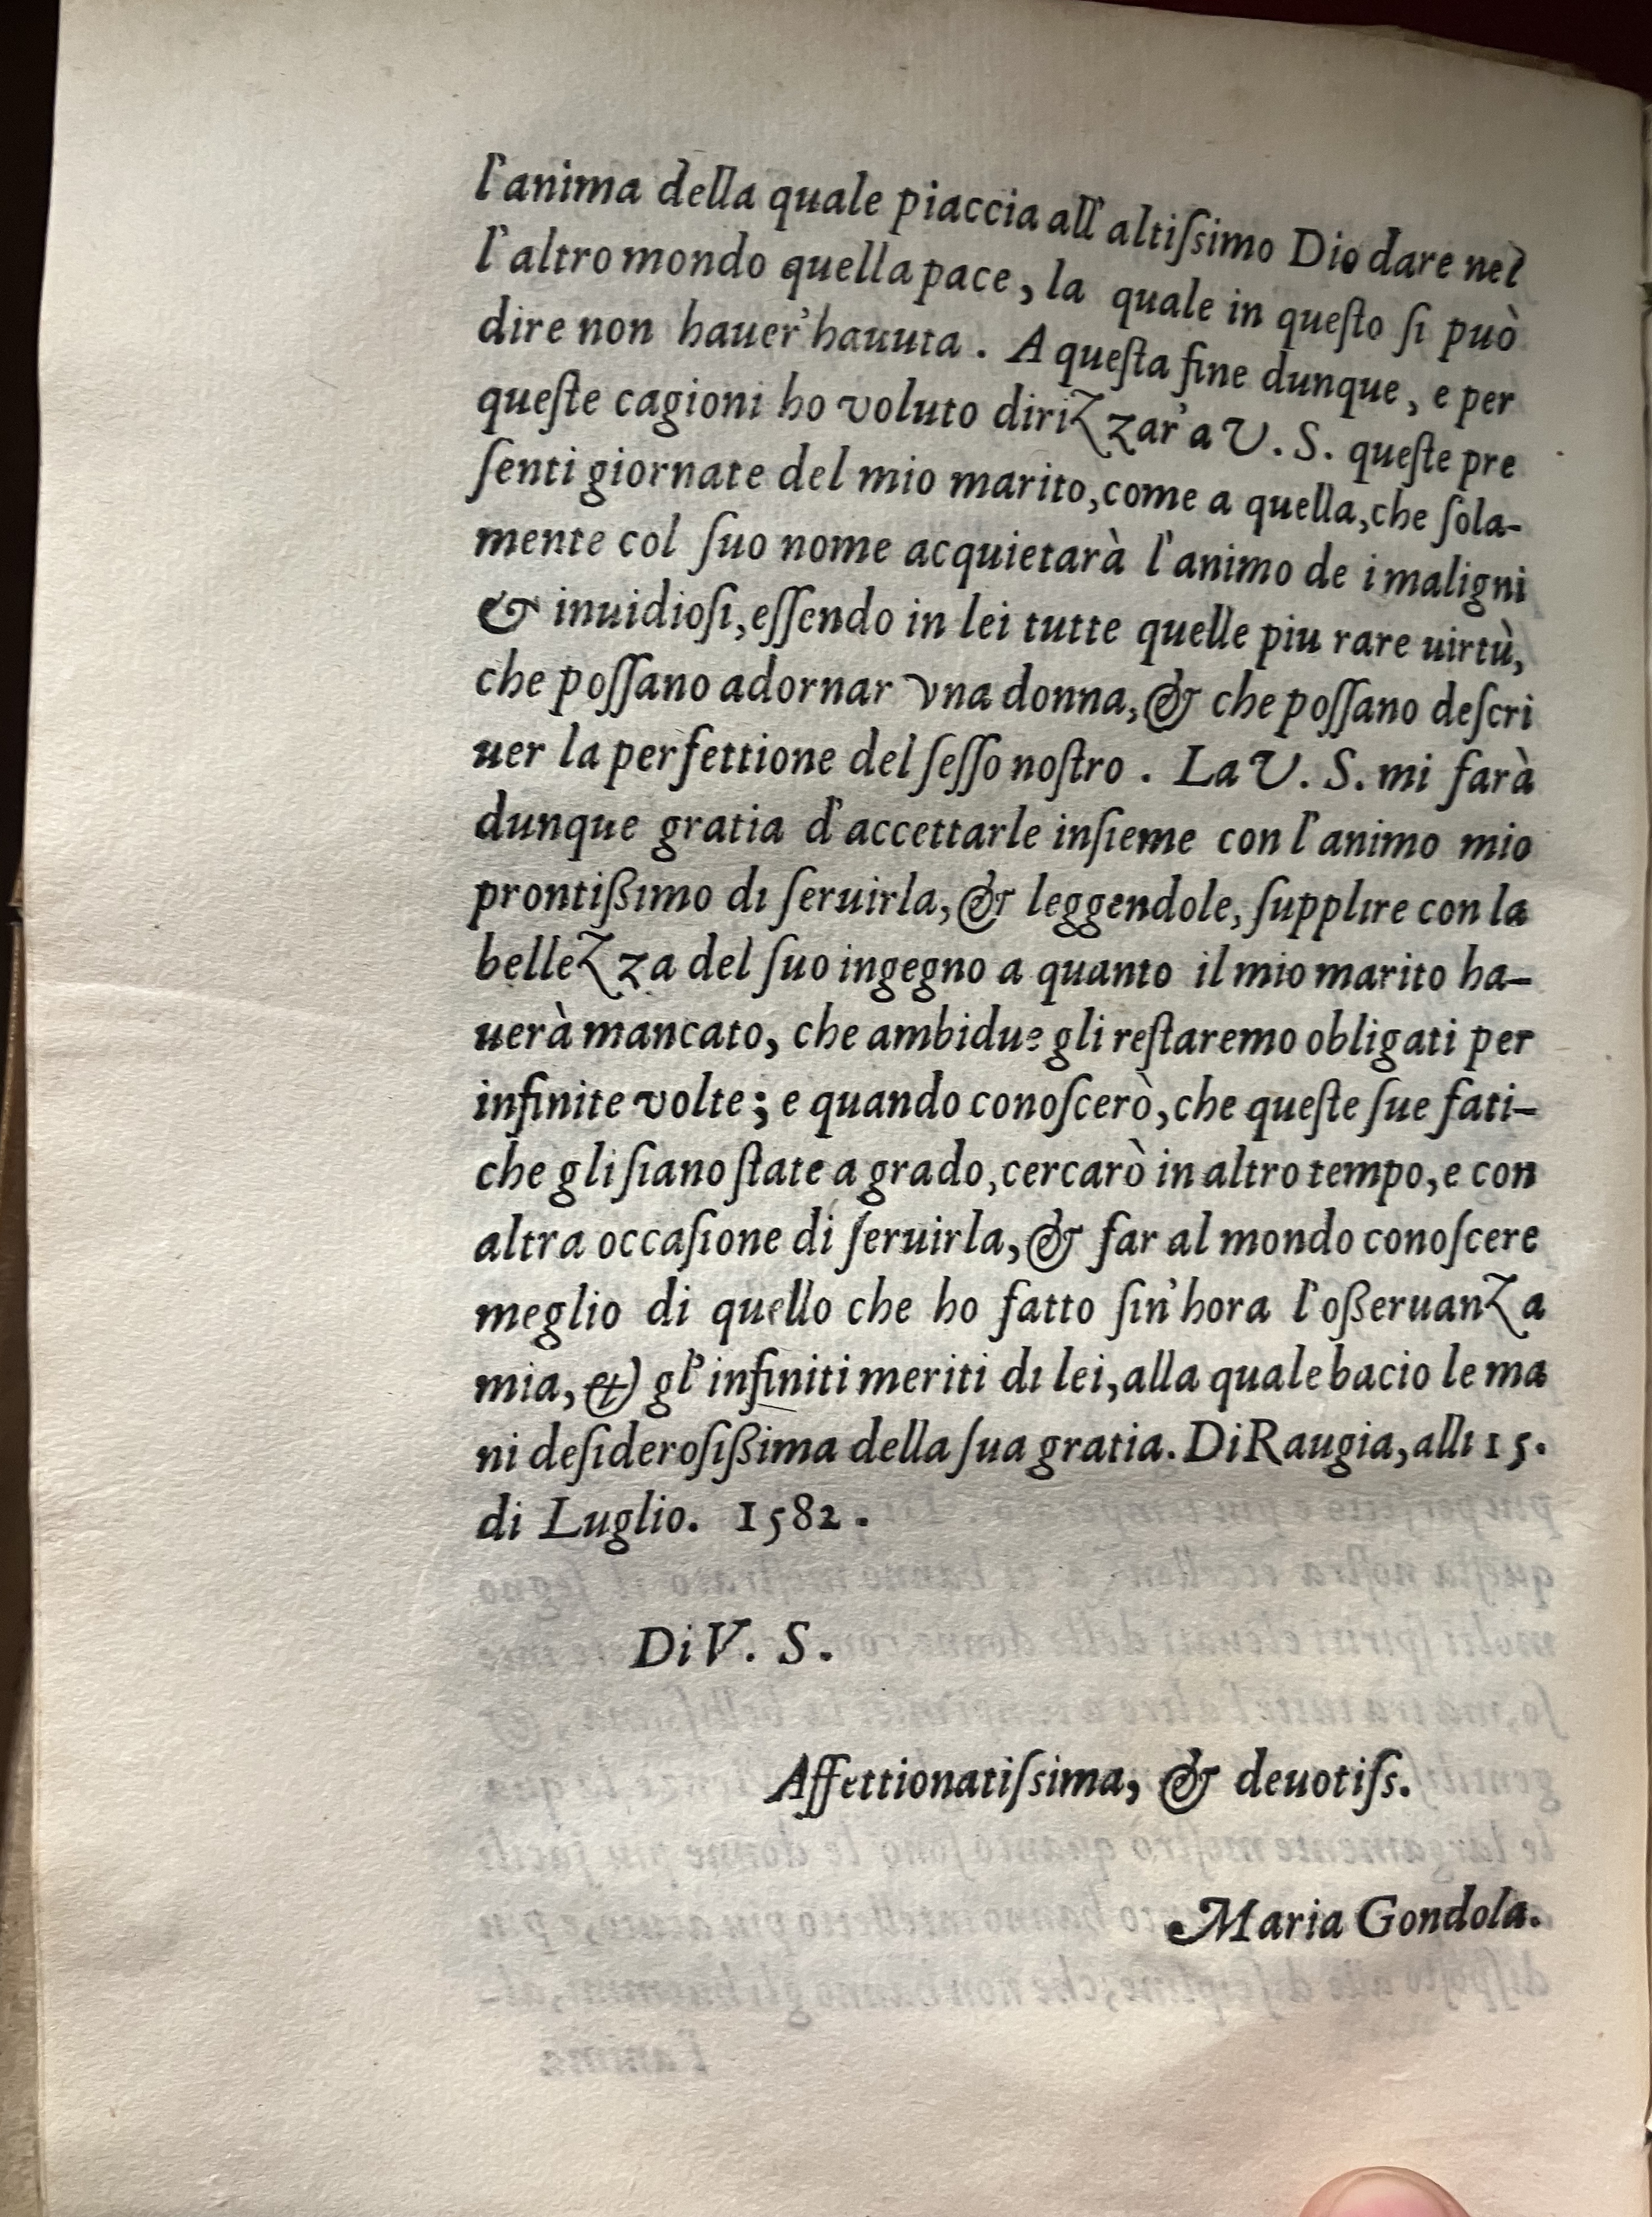 l'anima della quale piaccia all'altiſsimo Dio dare nel
l'altro mondo quella pace, la quale in queſto ſi può
dire non hauer'hauuta. A queſta fine dunque, e per
queſte cagioni ho voluto dirizzar'a V. S. queſte pre
ſenti giornate del mio marito, come a quella, che ſola-
mente col ſuo nome acquietarà l'animo de i maligni
& inuidioſi, eſſendo in lei tutte quelle piu rare uirtù,
che poſſano adornar vna donna, & che poſſano deſcri
uer la perfettione del ſeſſo noſtro. La V. S. mi farà
dunque gratia d'accettarle inſieme con l'animo mio
prontißimo di ſeruirla, & leggendole, ſupplire con la
bellezza del ſuo ingegno a quanto il mio marito ha-
uerà mancato, che ambidue gli reſtaremo obligati per
infinite volte; e quando conoſcerò, che queſte ſue fati-
che gli ſiano ſtate a grado, cercarò in altro tempo, e con
altra occaſione di ſeruirla, & far al mondo conoſcere
meglio di quello che ho fatto ſin'hora l'oßeruanza
mia, & gl'infiniti meriti di lei, alla quale bacio le ma
ni deſideroſißima della ſua gratia. Di Raugia, alli 15.
di Luglio. 1582.
Di V. S.
Affettionatiſsima, & deuotiſs.
Maria Gondola.